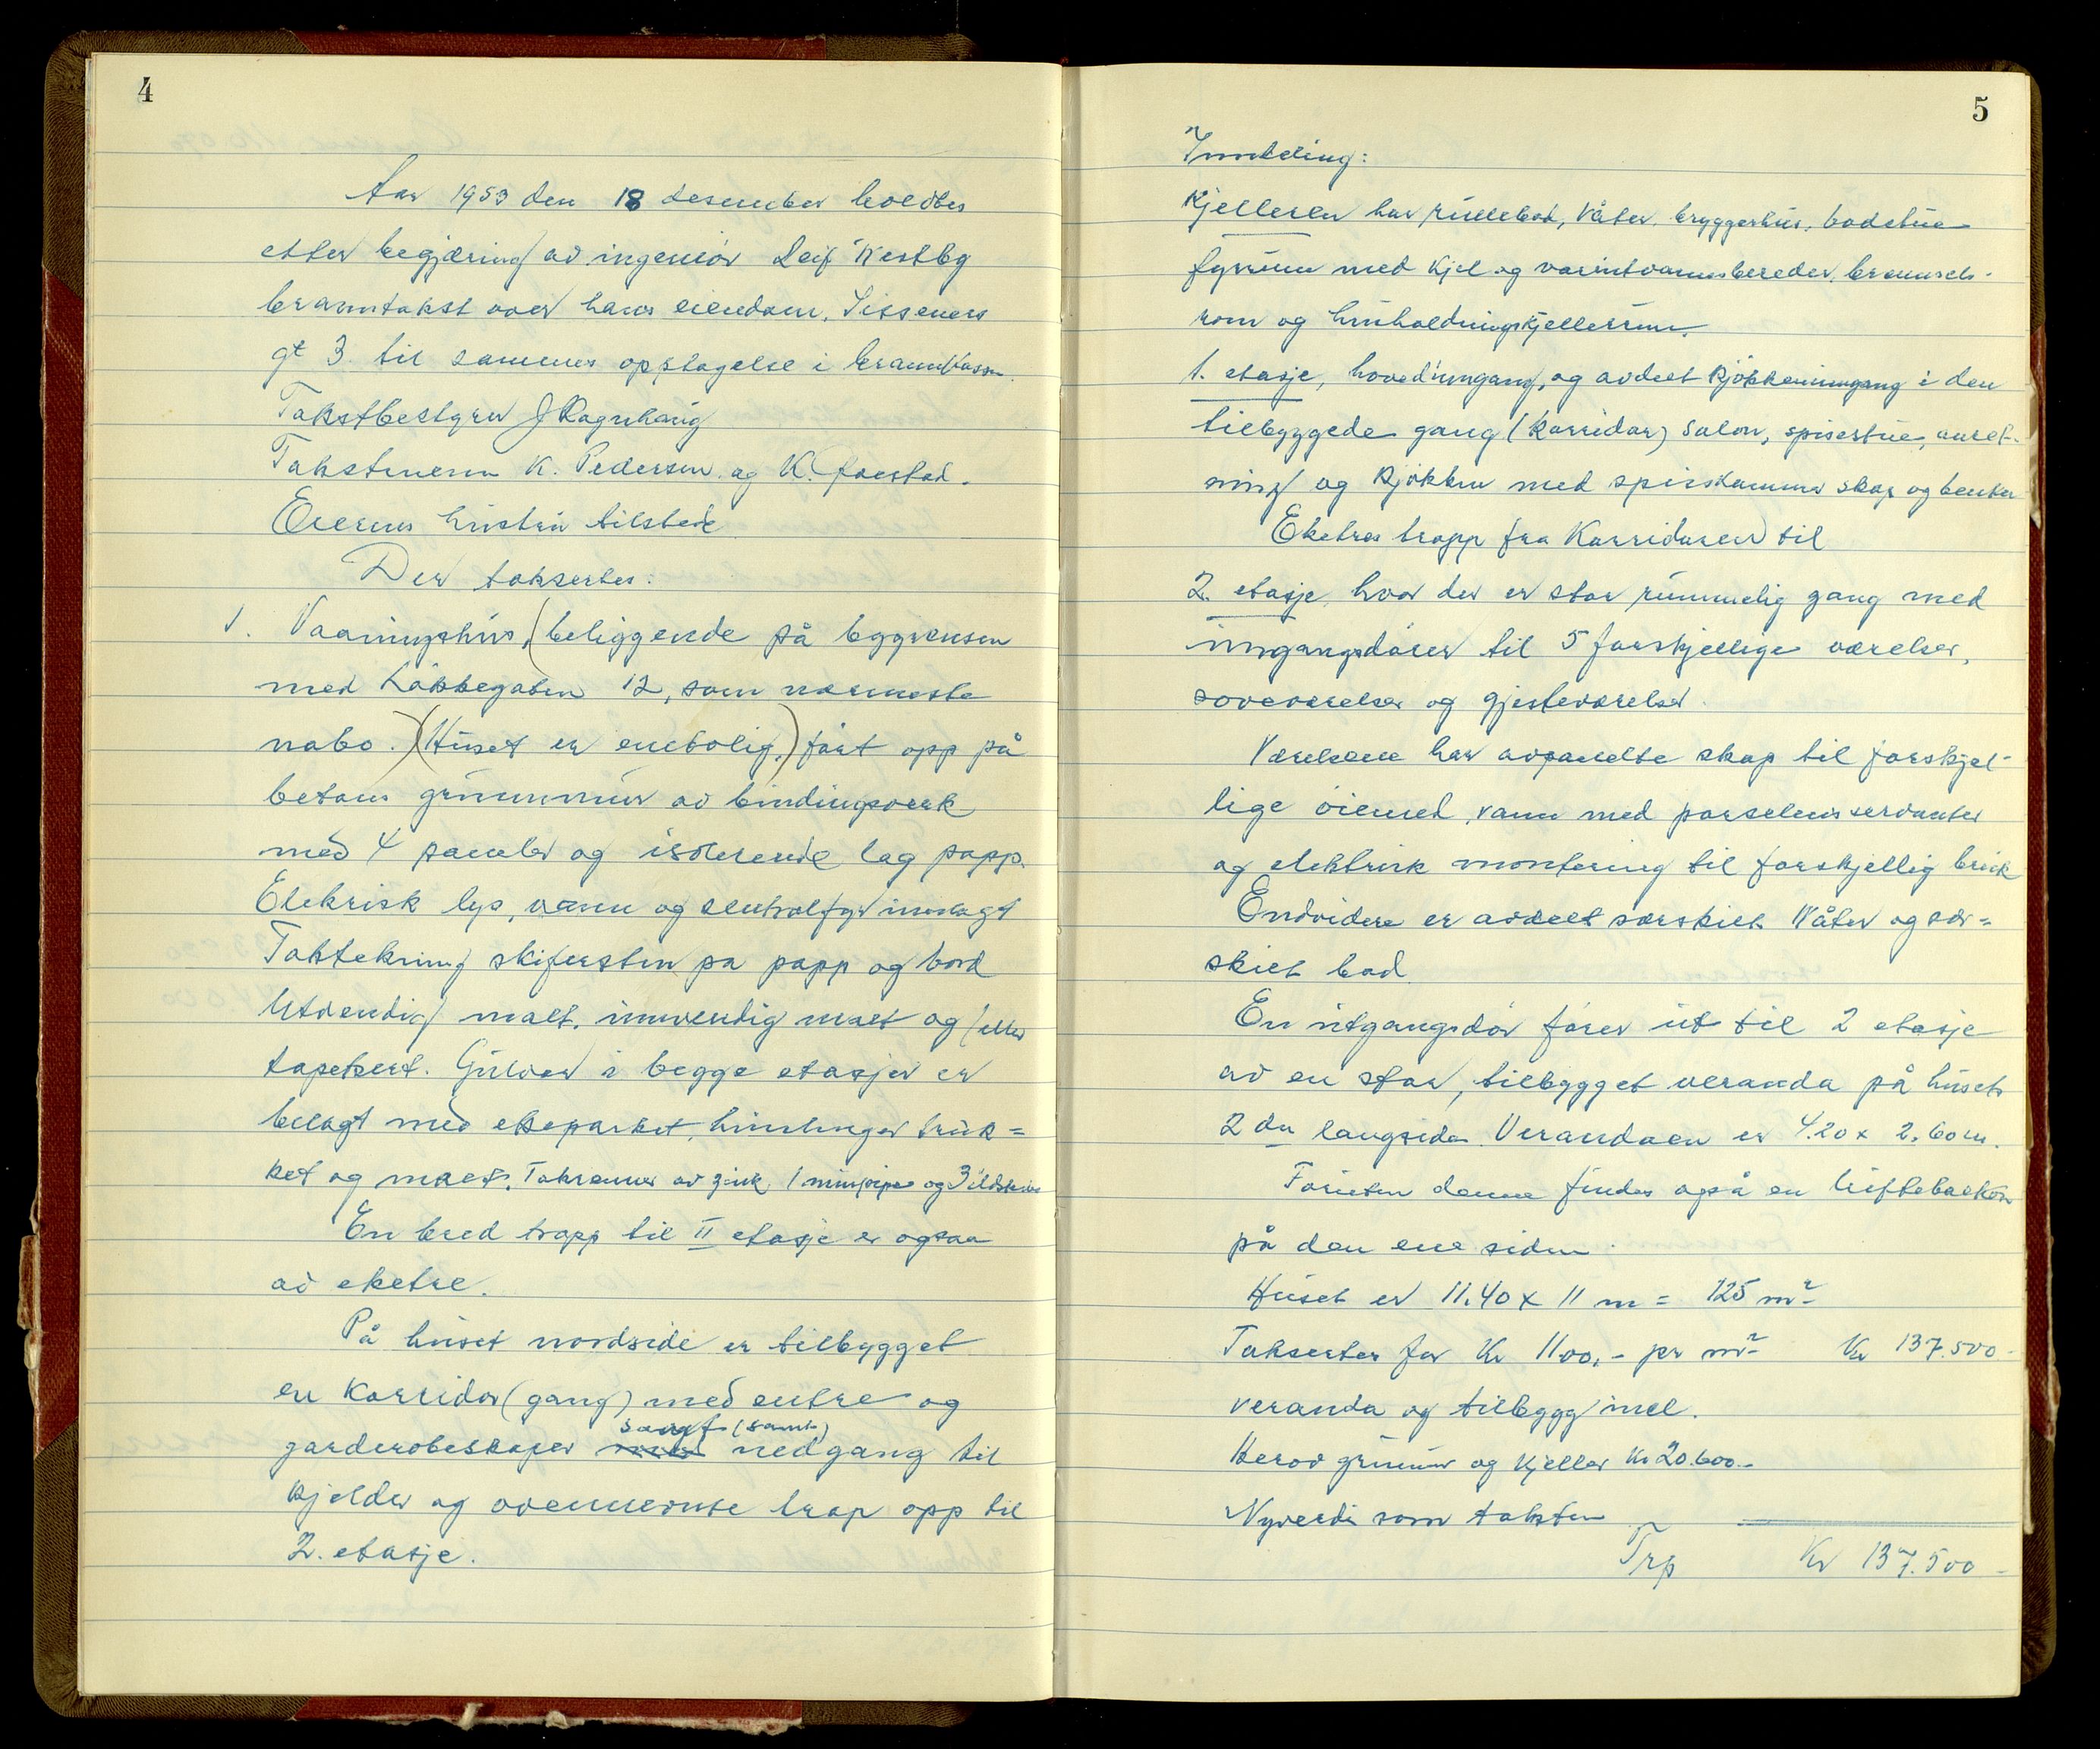 4
Aar 1953 den 18 desember holdtes
etter begjæring av ingeniör Leif Westby
branntakst over hans eiendom, Sisseners
gt 3. til sammes opptagelse i brannkassen.
Takstbestyrer J Ragnhaug
Takstmenn K. Pedersen og K. Jørstad.
Eierens hustru tilstede
Der taksertes:
1. Vaaningshus, (beliggende på bygrensen
med Lökkegaten 12, som nærmeste
nabo.) (Huset er enebolig,) fört opp på
betons grunnmur av bindingsverk
med 4 paneler og isolerende lag papp.
Elekrisk lys, vann og sentralfyr innlagt
Taktekning skifersten pa papp og bord
Utvendig malt, innvendig malt og /eller
tapetsert. Gulver i begge etasjer er
belagt med ekeparket, himlinger truk=
ket og malt. Takrenner av zink, 1 murpipe og 3 ildsteder
En bred trapp til II etasje er ogsaa
av eketre.
På huset nordside er tilbygget
en Korridor (gang) med entre og
samt (samt)
garderobeskaper med nedgang til
kjelder og ovennevnte trap opp til
2. etasje.
5
Inndeling:
Kjelleren har rullebod, Våter, bryggerhus, badstue
fyrrum med Kjel og varmtvannsbereder, brensels-
rom og husholdningskjellerrum.
1. etasje, hovedinngang, og avdelt kjökkeninngang i den
tilbyggede gang (Korridor) Salon, spisestue, anret-
ning og Kjökken med spiskammer skap og benker
Eketres trapp fra Korridoren til
2. etasje, hvor der er stor rummelig gang med
inngangsdörer til 5 forskjellige værelser,
soveværelser og gjesteværelser.
Værelsene har avpanelte skap til forskjel-
lige öiemed, vann med porselens servanter
og elektrisk montering til forskjellig bruk
Endvidere er avdelt særskilt Våter og sær=
skilt bad.
En utgangsdör förer ut til 2 etasje
av en stor, tilbygget veranda på husets
2 den langside. Verandaen er 4.20 x 2.60 m.
Foruten denne findes også en luftebalkon
på den ene siden.
Huset er 11.40 x 11 m = 125 m2
Takserter for Kr 1100,- pr m2 Kr 137.500-
veranda og tilbygg inel.
Herav grunmur og Kjeller Kr 20.600.-
Nyverdi som taksten
Trp Kr 137.500-